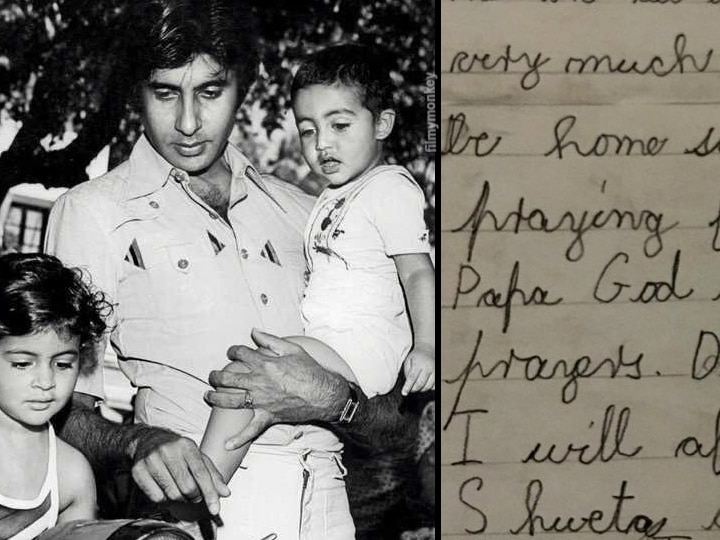 filmymonkey
very much
be home
praying
Papa God
prayers.
I will
Shweta